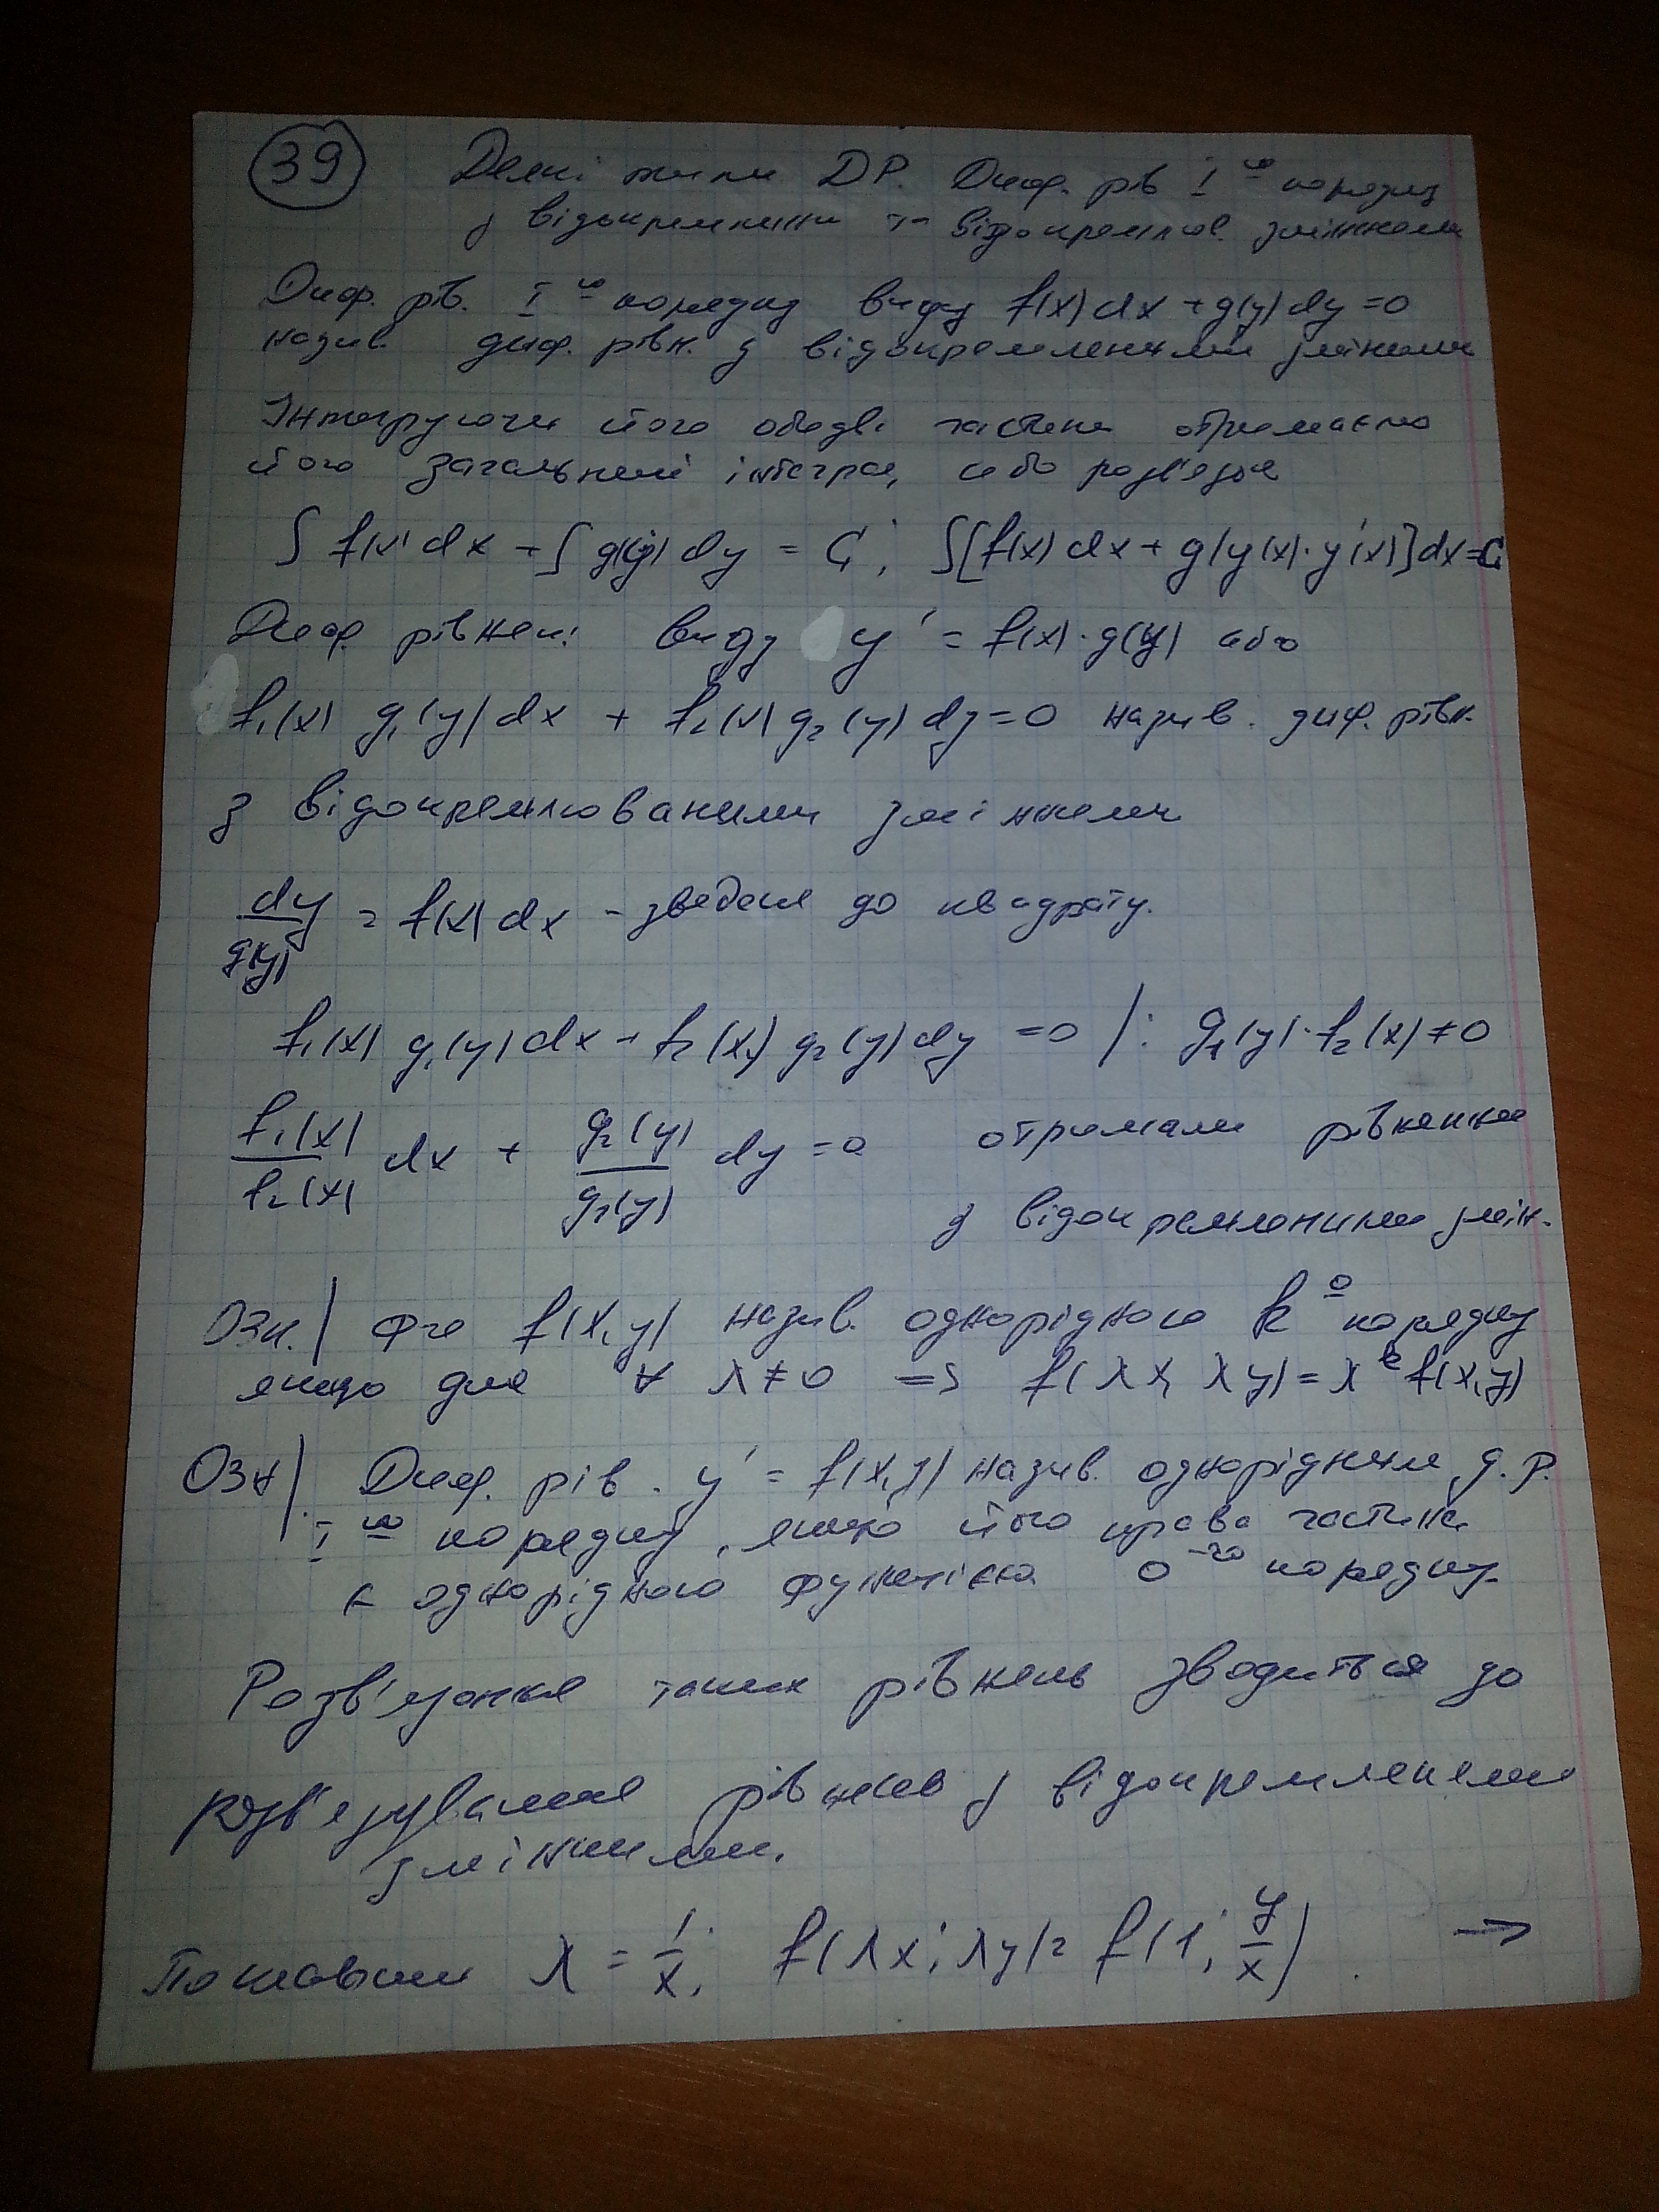 39 Деякі типи ДР. Диф. рів I го порядку
з відокремленими та відокремлюв. змінними
Диф. рів. I го порядку виду f(x)dx + g(y)dy = 0
назив. диф. рівн. з відокремленими змінними
Інтегруючи його обидві частини отримаємо
його загальний інтеграл, або розв'язок
∫ f(x) dx + ∫ g(y) dy = C₁; ∫[f(x) dx + g(y(x)·y'(x)]dx = C₁
Диф. рівнян. виду y' = f(x)·g(y) або
f₁(x) g₁(y) dx + f₂(x) g₂(y) dy = 0 назив. диф. рівн.
з відокремлюваними змінними
dy/g(y) = f(x) dx - зведене до квадрату.
f₁(x) g₁(y) dx + f₂(x) g₂(y) dy = 0 /: g₁(y)·f₂(x) ≠ 0
f₁(x)/f₂(x) dx + g₂(y)/g₁(y) dy = 0 отримали рівняння
з відокремленими змін.
Озн.| Ф-ю f(x,y) назив. однорідною k го порядку
якщо для ∀ λ ≠ 0 => f(λx, λy) = λᵏ f(x,y)
Озн| Диф. рів. y' = f(x,y) назив. однорідним д.р.
I го порядку, якщо його права частина
є однорідною функцією 0-го порядку.
Розв'язання таких рівнянь зводиться до
розв'язування рівнянь з відокремленими
змінними.
Поставим λ = 1/x; f(λx; λy) = f(1; y/x). →